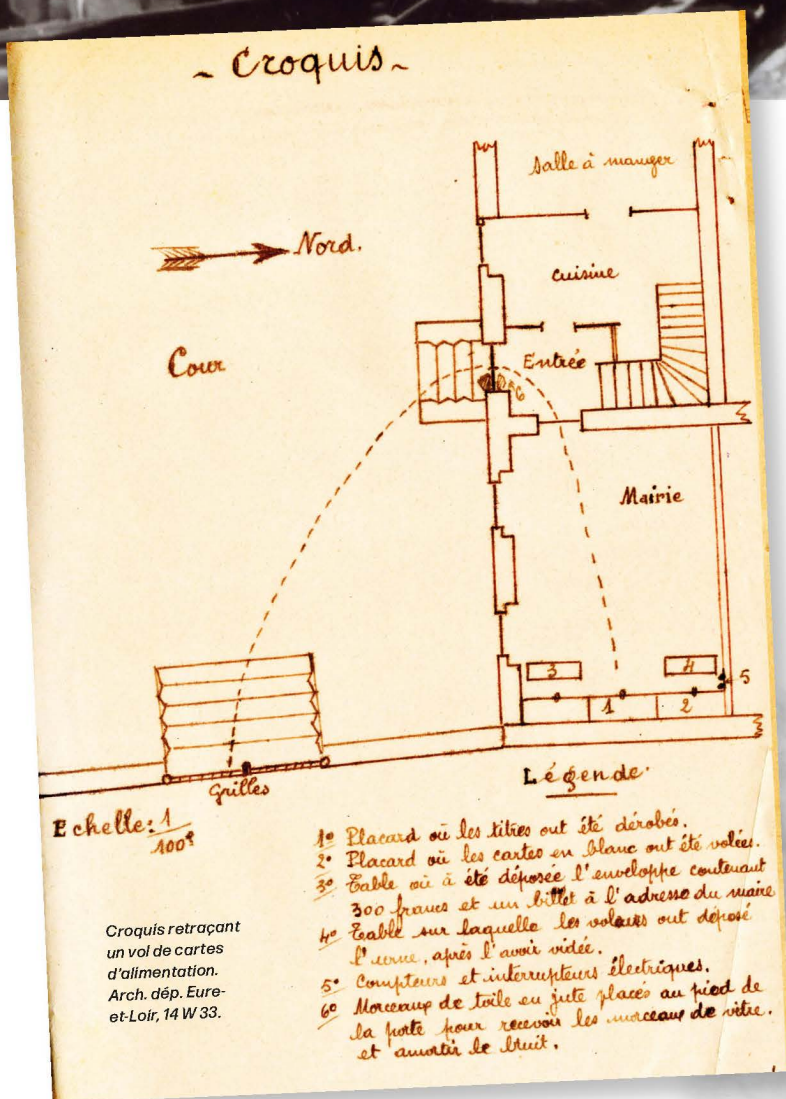 ~ Croquis ~
Salle à manger
Nord.
Cuisine
Cour
Entrée
6
Mairie
3
4
5
1
2
Grilles
Légende.
Echelle: 1
100e
1º Placard où les titres ont été dérobés.
2º Placard où les cartes en blanc ont été volées.
3º Table où à été déposée l'enveloppe contenant
300 francs et un billet à l'adresse du maire
4º Table sur laquelle les voleurs ont déposé
l'urne, après l'avoir vidée.
5º Compteurs et interrupteurs électriques.
6º Morceaux de toile en jute placés au pied de
la porte pour recevoir les morceaux de vitre.
et amortir le bruit.
Croquis retraçant
un vol de cartes
d'alimentation.
Arch. dép. Eure-
et-Loir, 14 W 33.